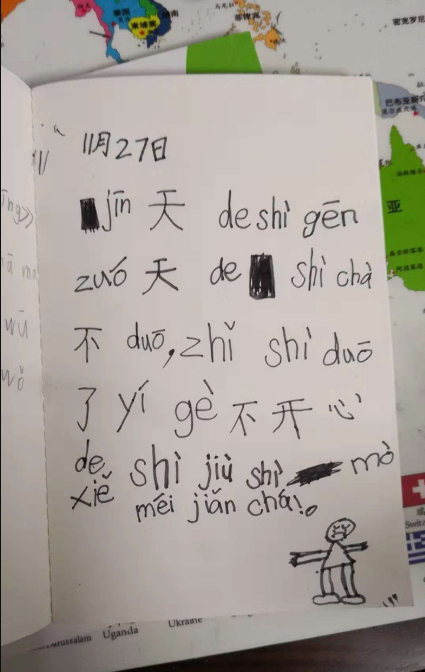 泰国
柬埔寨
菲律宾
11月27日
jīn 天 de shì gēn
zuó 天 de shì chà
不 duō, zhǐ shì duō
了 yí gè 不 开 心
de shì jiù shì mò
xiě méi jiǎn chá!。
wū
wǒ
亚
Uganda
Ukraine